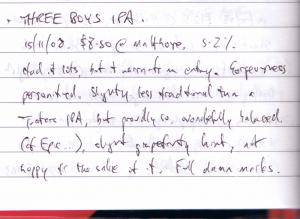 · THREE BOYS IPA.
15/11/08. $8.50 @ Malthouse, 5.2%.
Had it lots, but it warrants an entry. Gorgeousness
personified. Slightly less traditional than a
IPA, but proudly so, wonderfully balanced
(cf Epic...), slight grapefruity hint, not
hoppy for the sake of it. Full damn marks.